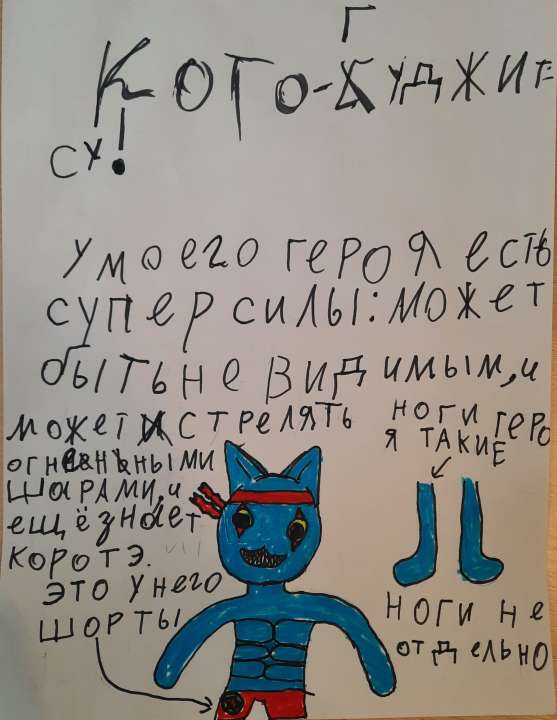 Г
КОТО-ХУДЖИТ
СУ!
У моего героя есть
супер силы: может
быть не видимым, и
может стрелять
огненными
шарами, и
ещё знает
коротэ.
это у него
шорты
ноги геро
я такие
ноги не
отдельно